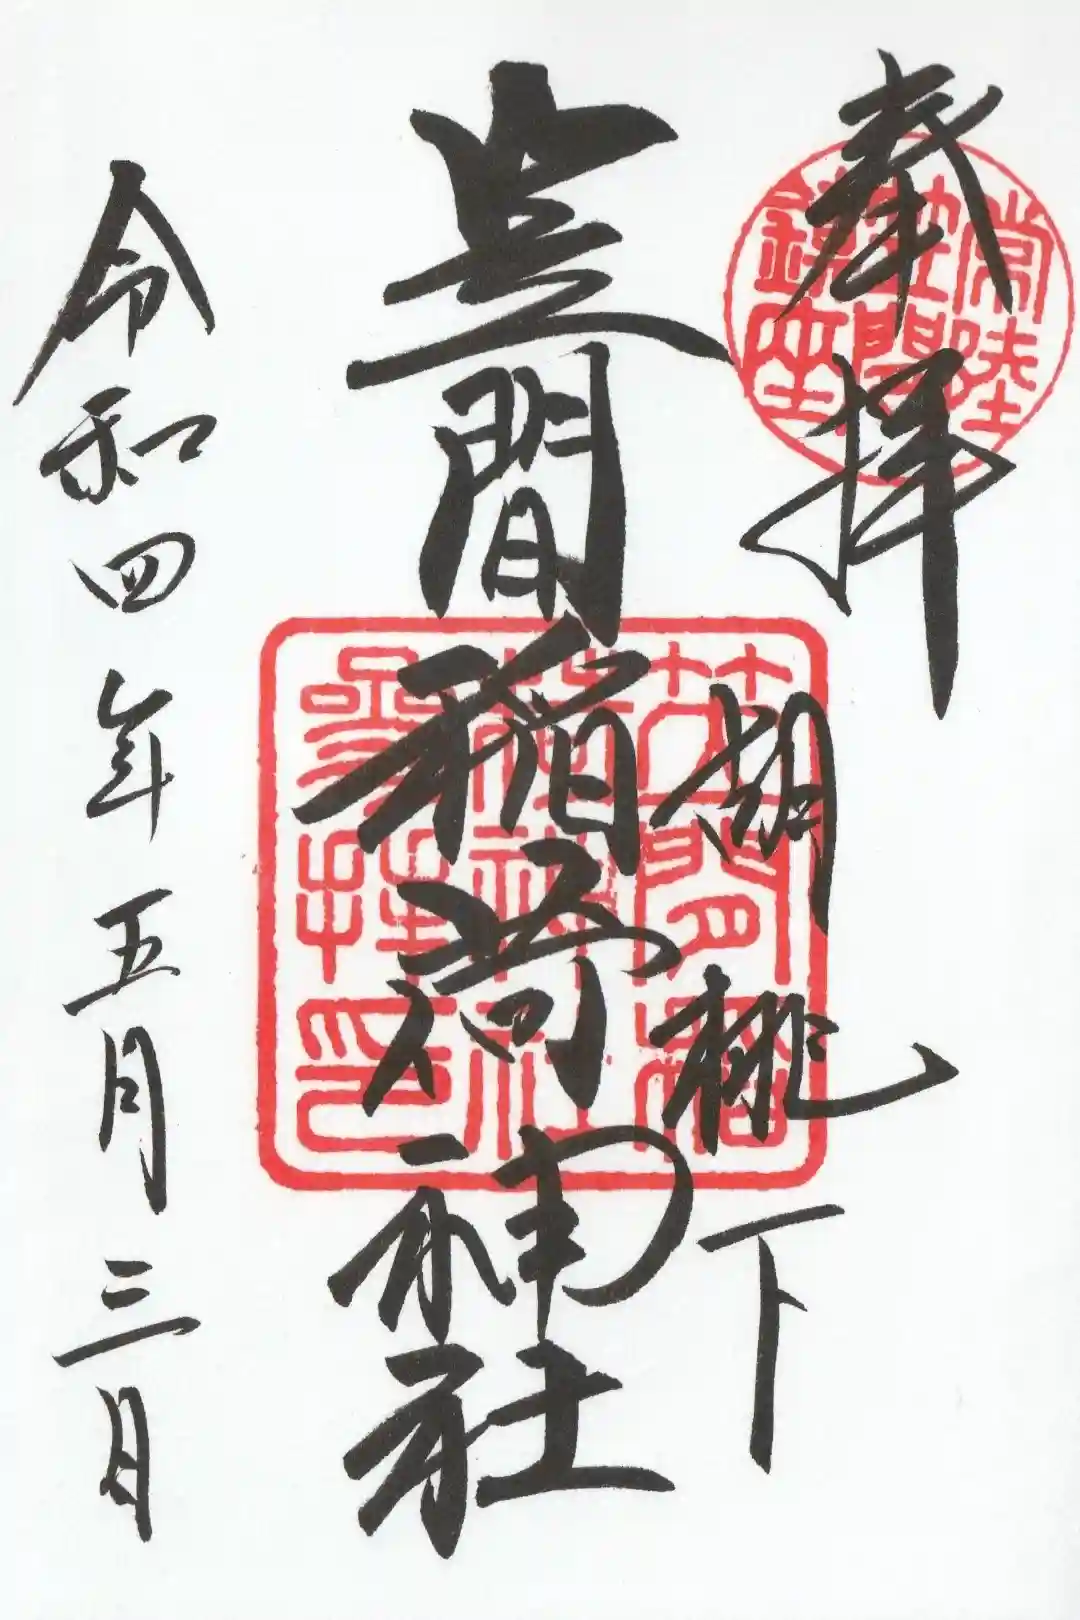 奉拝
常陸
笠間
鎮座
胡桃下
笠間稲荷神社
笠間稲
荷神社
参拝印
令和四年五月三日